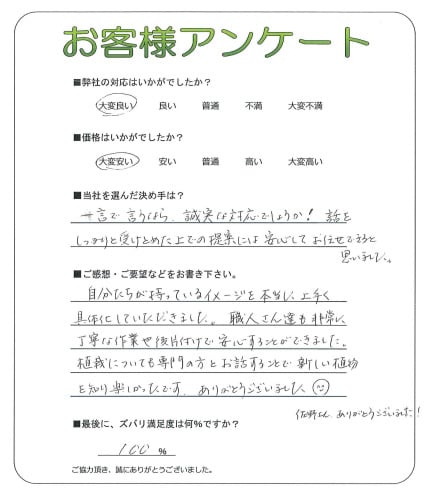 お客様アンケート
■弊社の対応はいかがでしたか?
大変良い 良い 普通 不満 大変不満
■価格はいかがでしたか?
大変安い 安い 普通 高い 大変高い
■当社を選んだ決め手は?
一言で言うなら、誠実な対応でしょうか! 話を
しっかりと受けとめた上での提案には安心してお任せできると
思いました。
■ご感想・ご要望などをお書き下さい。
自分たちが持っているイメージを本当に上手く
具体化していただきました。職人さん達も非常に
丁寧な作業や後片付けで安心することができました。
植栽についても専門の方とお話することで新しい植物
を知り楽しかったです。ありがとうございました
佐野さん、ありがとうございました!
■最後に、ズバリ満足度は何%ですか?
100 %
ご協力頂き、誠にありがとうございました。